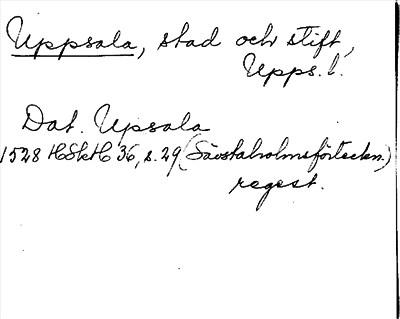 Uppsala, stad och stift,
Upps. l.
Dat. Upsala
1528 HSkH 36, s. 29 (Sävstaholmsförteckn.)
regest.